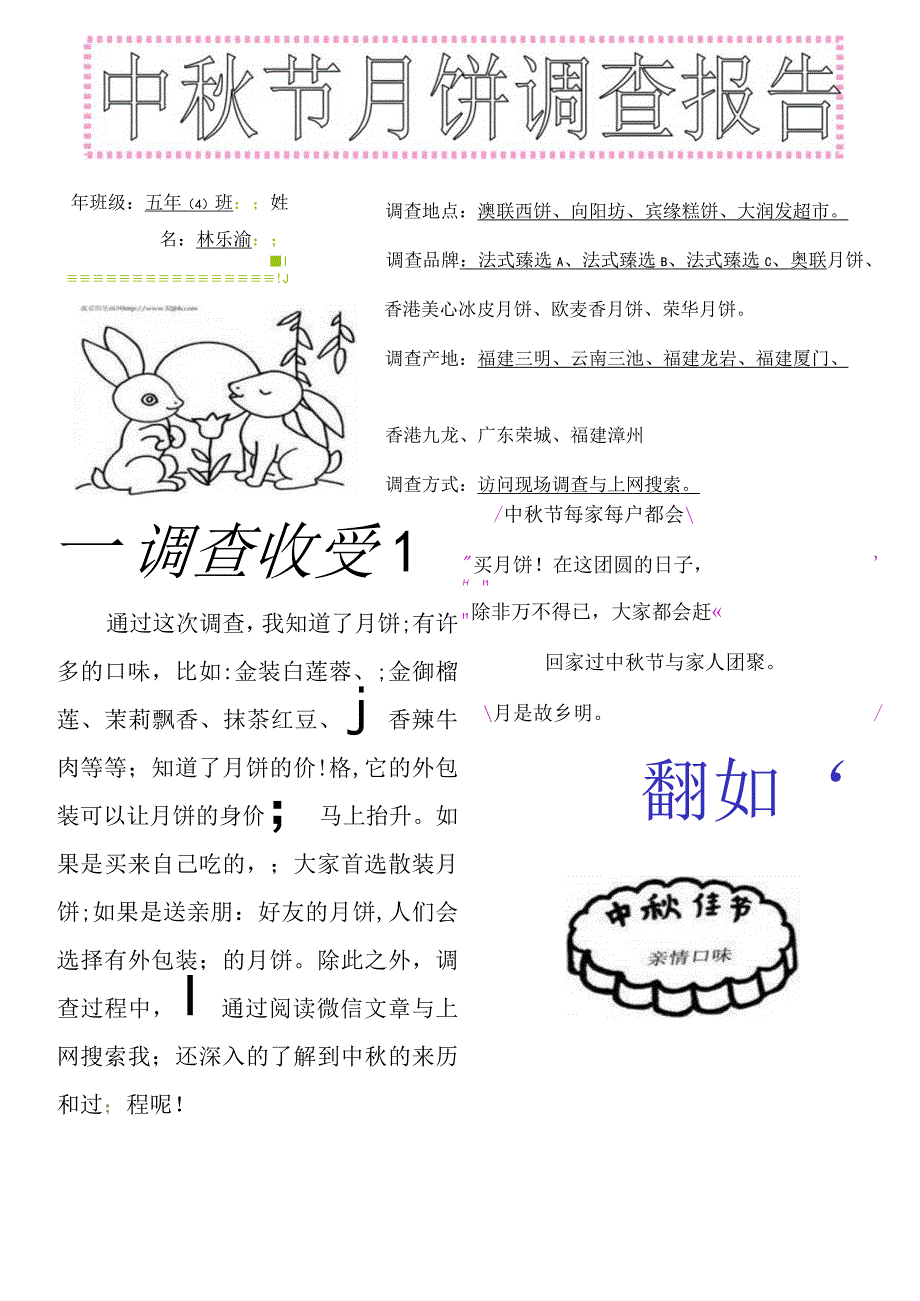 中秋节月饼调查报告
年班级：五年（4）班：；姓
名：林乐渝：；
■I
≡≡≡≡≡≡≡≡≡≡≡≡≡≡≡≡!J
调查地点：澳联西饼、向阳坊、宾缘糕饼、大润发超市。
调查品牌：法式臻选A、法式臻选B、法式臻选C、奥联月饼、
香港美心冰皮月饼、欧麦香月饼、荣华月饼。
调查产地：福建三明、云南三池、福建龙岩、福建厦门、
香港九龙、广东荣城、福建漳州
调查方式：访问现场调查与上网搜索。
一调查收受1
通过这次调查，我知道了月饼;有许
多的口味，比如:金装白莲蓉、;金御榴
莲、茉莉飘香、抹茶红豆、j 香辣牛
肉等等；知道了月饼的价!格,它的外包
装可以让月饼的身价； 马上抬升。如
果是买来自己吃的，；大家首选散装月
饼;如果是送亲朋：好友的月饼,人们会
选择有外包装；的月饼。除此之外，调
查过程中，I 通过阅读微信文章与上
网搜索我；还深入的了解到中秋的来历
和过；程呢！
/中秋节每家每户都会\
"买月饼！在这团圆的日子，'
H I1
I1除非万不得已，大家都会赶«
回家过中秋节与家人团聚。
\月是故乡明。 /
翻如‘
中秋佳节
亲情口味